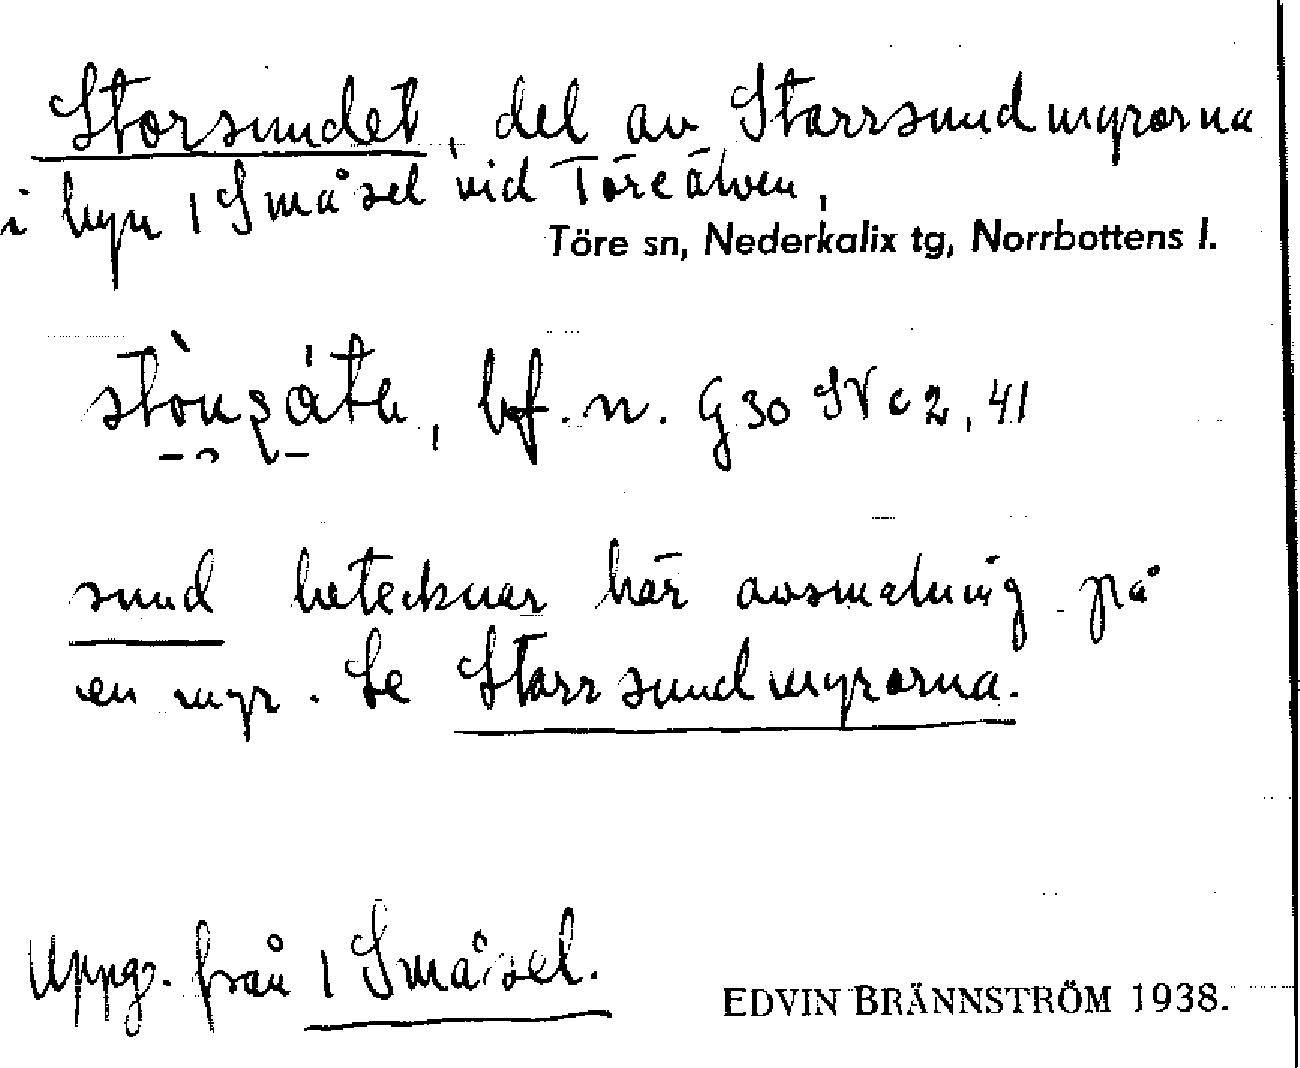 Storsundet, del av Starrsundmyrorna
i byn 1 Småsel vid Töreälven,
Töre sn, Nederkalix tg, Norrbottens l.
bf. n. G 30 SV c 2, 41
sund betecknar här avsmalning på
en myr. Se Starrsundmyrorna.
Uppg. från 1 Småsel.
EDVIN BRÄNNSTRÖM 1938.